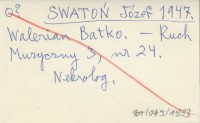 SWATOŃ Józef 1947.
Walerian Batko. — Ruch
Muzyczny 3, nr 24.
Nekrolog.